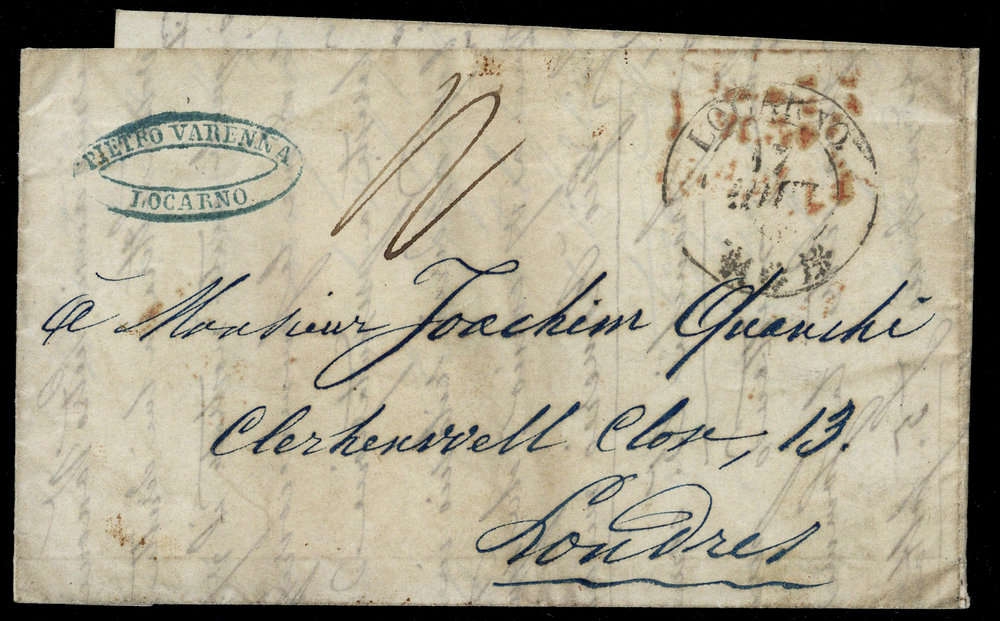 PIETRO VARENNA
LOCARNO.
LOCARNO
17
à Monsieur Joachim Quanchi
Clerkenwell Close, 13.
Londres